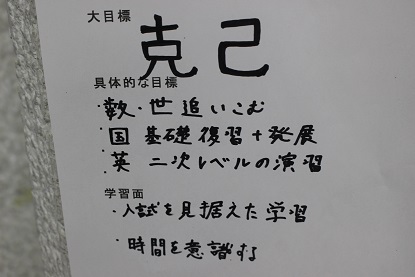 大目標
克己
具体的な目標
・数・世追いこむ
・国 基礎復習+発展
・英 二次レベルの演習
学習面
・入試を見据えた学習
・時間を意識する